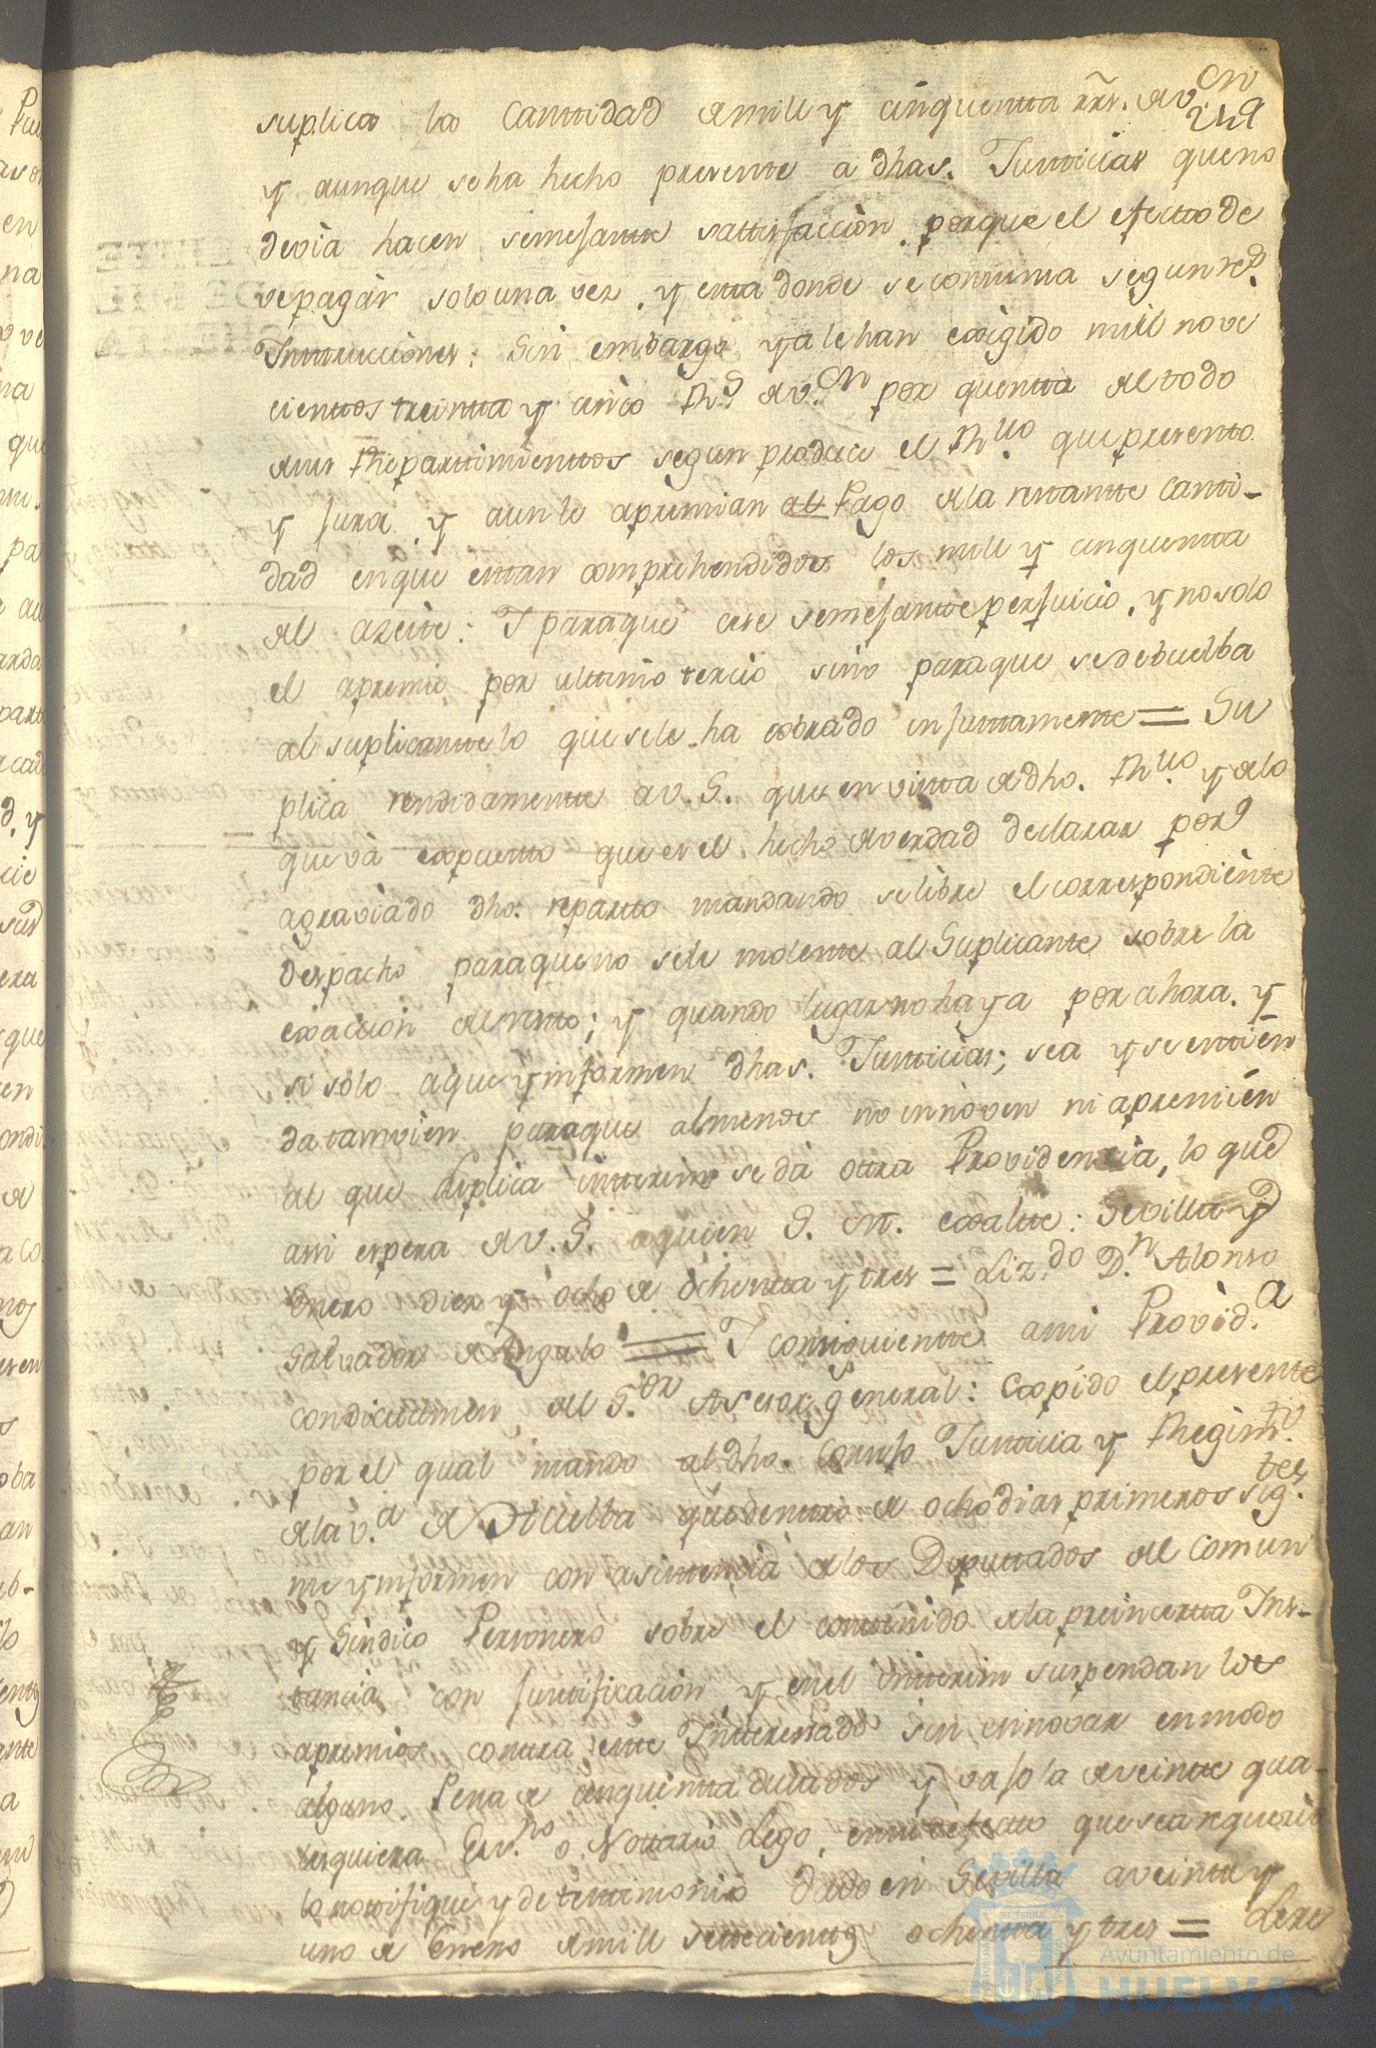 suplica la Cantidad de mill y cinquenta rrs. de v.on
249
y aunque se ha hecho presente a dhas. Justicias que no
devia hacer semejante sattisfacción, porque el efecto de
ve pagàr solo una vez, y esta donde se consuma segun r.s
Instrucciones: Sin embargo ya le han exigido mill nove
cientos treinta y cinco R.s de v.on por quenta del todo
de sus Repartimientos segun produce el R.vo que presento
y juro, y aun le apremian al Pago de la restante Canti-
dad en que estan comprehendidos los mill y cinquenta
del azeite: Y para que cese semejante perjuicio, y no solo
el apremio por ultimo tercio sino para que se debuelba
al suplicante lo que se le ha cobrado injustamente = Su
plica rendidamente a V. S. que en vista de dho. R.vo y de lo
que và expuesto que es el hecho de verdad declarar por
agraviado dho. reparto mandando se libre el correspondiente
Despacho para que no se le moleste al Suplicante sobre la
exaccion del resto; y quando lugar no haya por ahora, y
si solo a que ynformen dhas. Justicias; sea y se entien
da tamvien para que al menos no innoven ni apremien
al que suplica interin se dà otra Providencia, lo que
assi espera de V. S. a quien D. m. exalte: Sevilla y
Enero diez y ocho de ochenta y tres = Liz.do D.n Alonso
Salvador de Angulo = Y consiguiente a mi Provid.a
con dictamen del S.or Asesor general: Expido el presente
por el qual mando al dho. Consejo Justicia y Regim.to
de la v.a de Huelba que dentro de ocho dias primeros sig.tes
me ynformen con asistencia de los Diputados del Comun
y Sindico Personero sobre el contenido de la preinserta Ins-
tancia con justificacion, y en el interim suspendan los
apremios contra este Interesado sin innovar en modo
alguno. Pena de cinquenta ducados y vajo la de veinte qua-
lesquiera Esc.no o Nottario Lego, en su defecto que sea requerido
lo notifique y de testimonio dado en Sevilla a veinte y
uno de Enero de mill settecientos ochenta y tres = Lere
Ayuntamiento de
HUELVA